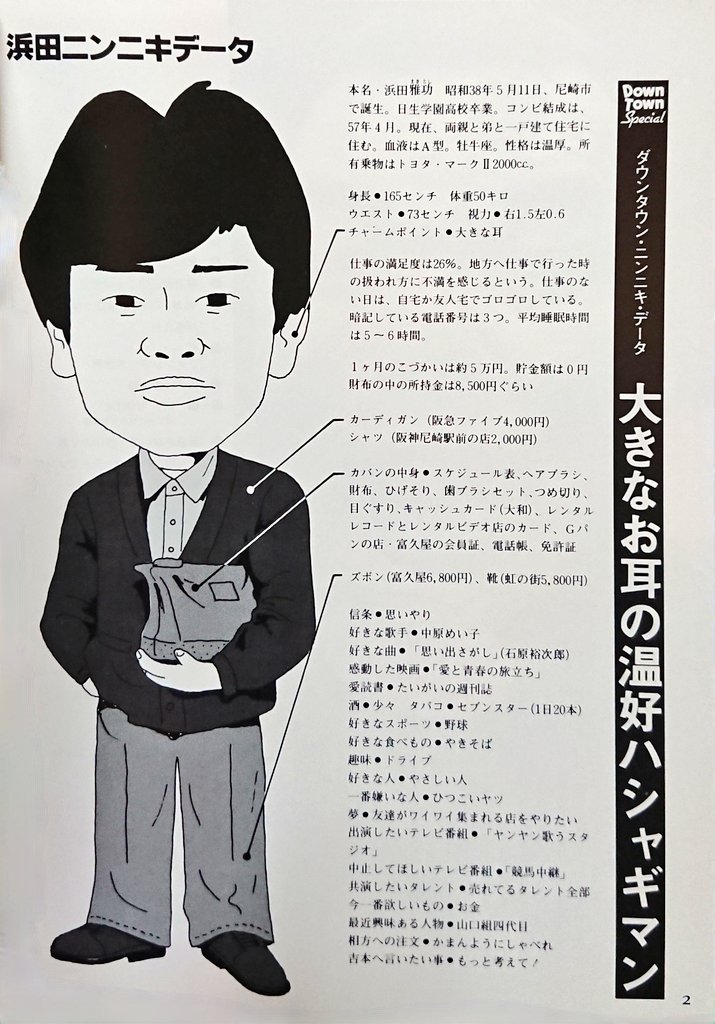 浜田ニンニキデータ
本名・浜田雅功　昭和38年5月11日、尼崎市
で誕生。日生学園高校卒業。コンビ結成は、
57年4月。現在、両親と弟と一戸建て住宅に
住む。血液はA型。牡牛座。性格は温厚。所
有乗物はトヨタ・マークⅡ2000cc。
身長●165センチ　体重50キロ
ウエスト●73センチ　視力●右1.5左0.6
チャームポイント●大きな耳
仕事の満足度は26%。地方へ仕事で行った時
の扱われ方に不満を感じるという。仕事のな
い日は、自宅か友人宅でゴロゴロしている。
暗記している電話番号は3つ。平均睡眠時間
は5〜6時間。
1ヶ月のこづかいは約5万円。貯金額は0円
財布の中の所持金は8,500円ぐらい
カーディガン（阪急ファイブ4,000円）
シャツ（阪神尼崎駅前の店2,000円）
カバンの中身●スケジュール表、ヘアブラシ、
財布、ひげそり、歯ブラシセット、つめ切り、
目ぐすり、キャッシュカード（大和）、レンタル
レコードとレンタルビデオ店のカード、Gパ
ンの店・富久屋の会員証、電話帳、免許証
ズボン（富久屋6,800円）、靴（虹の街5,800円）
信条●思いやり
好きな歌手●中原めい子
好きな曲●「思い出さがし」（石原裕次郎）
感動した映画●「愛と青春の旅立ち」
愛読書●たいがいの週刊誌
酒●少々　タバコ●セブンスター（1日20本）
好きなスポーツ●野球
好きな食べもの●やきそば
趣味●ドライブ
好きな人●やさしい人
一番嫌いな人●ひつこいヤツ
夢●友達がワイワイ集まれる店をやりたい
出演したいテレビ番組●「ヤンヤン歌うスタ
ジオ」
中止してほしいテレビ番組●「競馬中継」
共演したいタレント●売れてるタレント全部
今一番欲しいもの●お金
最近興味ある人物●山口組四代目
相方への注文●かまんようにしゃべれ
吉本へ言いたい事●もっと考えて！
Down
Town
Special
ダウンタウン・ニンニキ・データ
大きなお耳の温好ハシャギマン
2